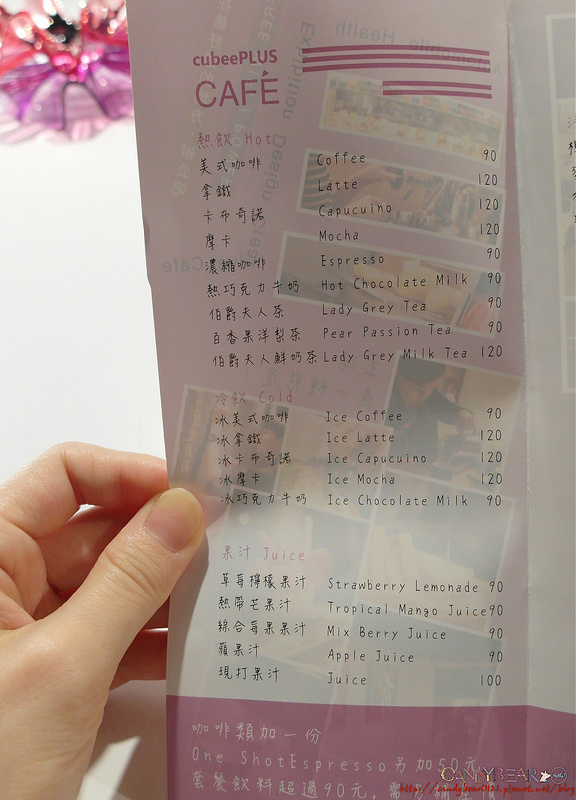 cubeePLUS
CAFÉ
熱飲 Hot
美式咖啡 Coffee 90
拿鐵 Latte 120
卡布奇諾 Capucuino 120
摩卡 Mocha 120
濃縮咖啡 Espresso 90
熱巧克力牛奶 Hot Chocolate Milk 90
伯爵夫人茶 Lady Grey Tea 90
百香果洋梨茶 Pear Passion Tea 90
伯爵夫人鮮奶茶 Lady Grey Milk Tea 120
冷飲 Cold
冰美式咖啡 Ice Coffee 90
冰拿鐵 Ice Latte 120
冰卡布奇諾 Ice Capucuino 120
冰摩卡 Ice Mocha 120
冰巧克力牛奶 Ice Chocolate Milk 90
果汁 Juice
草莓檸檬果汁 Strawberry Lemonade 90
熱帶芒果汁 Tropical Mango Juice 90
綜合莓果果汁 Mix Berry Juice 90
蘋果汁 Apple Juice 90
現打果汁 Juice 100
咖啡類加一份
One ShotEspresso另加50元
套餐飲料超過90元，需
CANDYBEAR
http://candybear0121.pixnet.net/blog